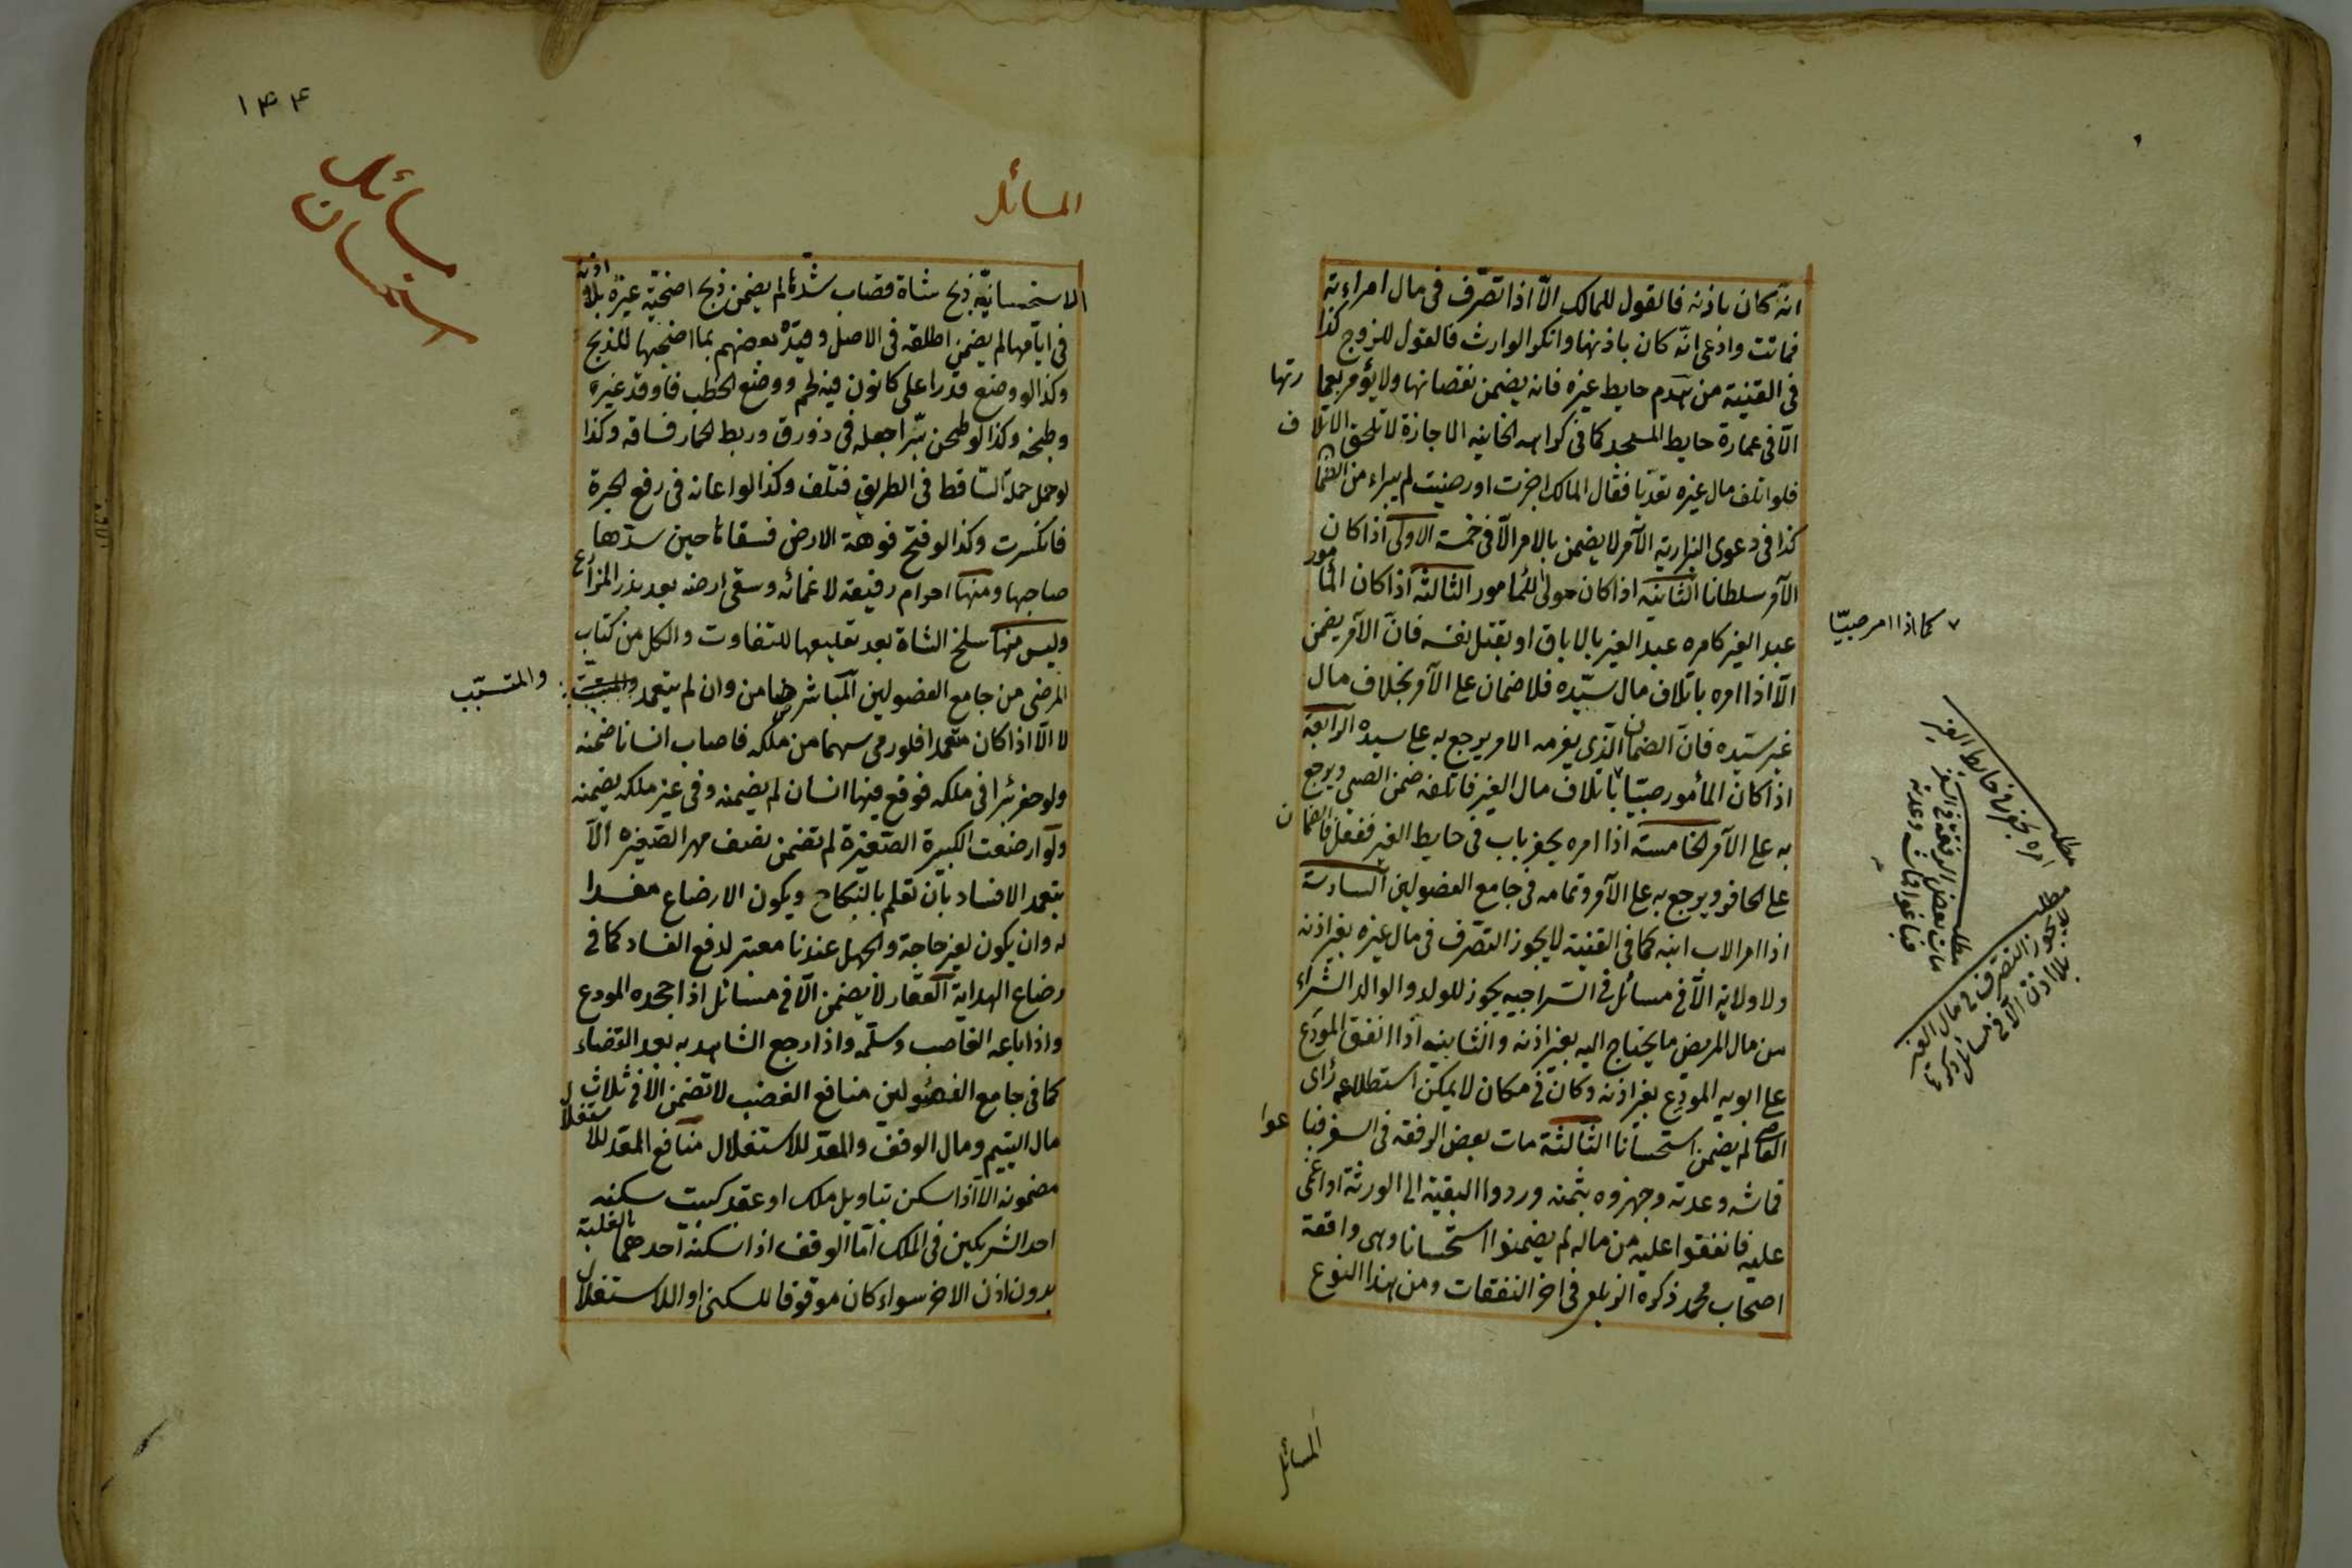 انه كان باذنه فالقول للمالك الّا اذا تصّرف فى مال امراءته
فماتت وادّعى انّه كان باذنها وانكر الوارث فالقول للزوج كذا
فى القنية من هدم حايط غيره فانه يضمن نقصانها ولا يؤمر بعمارتها
الّا فى عمارة حايط المسجد كما فى كراهه الخانيه الاجازة لا تلحق الاتلاف
فلو اتلف مال غيره تعدّيا فقال المالك اجزت او رضيت لم يبراء من الضما
كذا فى دعوى البزازيه الآمر لا يضمن بالامر الّا فى خمسة الاولى اذا كان
الآمر سلطانا الثانيه اذا كان مولى للمامور الثالثه اذا كان المامور
عبد الغير كامره عبد الغير بالاباق او بقتل نفسه فان الآمر يضمن
الّا اذا امره باتلاف مال سيّده فلا ضمان على الآمر بخلاف مال
غير سيّده فانّ الضمان الّذى يغرمه الامر يرجع به على سيده الرابعة
اذا كان المأمور صبيّا ٧ باتلاف مال الغير فاتلفه ضمن الصبى ويرجع
به على الآمر الخامسة اذا امره بحفر باب فى حايط الغير ففعل فالضمان
على الحافر ويرجع به على الآمر وتمامه فى جامع الفصولين السادسة
اذا امر الاب ابنه كما فى القنية لا يجوز التصّرف فى مال غيره بغير اذنه
ولا ولايه الّا فى مسائل فى السّراجيه يجوز للولد والوالد الشراء
من مال المريض ما يحتاج اليه بغير اذنه والثانيه اذا انفق المودَع
على ابويه المودِع بغير اذنه وكان فى مكان لا يمكن استطلاع رأى
القاضى لم يضمن استحسانا الثالثة مات بعض الرفقه فى السفر فباعوا
قماشه وعدته وجهزوه بثمنه وردوا البقية الى الورثة او اغمى
عليه فانفقوا عليه من ماله لم يضمنوا استحسانا وهى واقعة
اصحاب محمد ذكره الزيلعى فى اخر النفقات ومن هذا النوع
المسائل
٧ كما اذا امر صبيّا
مطلب
امره بحفر فى حايط الغير
مطلب
مات بعض الرفقة فى السفر
فباعوا قماشه وعدته
مطلب
لا يجوز التصّرف فى مال الغير
بلا اذن الّا فى مسائل
١٤٤
مسائل
استحسان
المسائل
الاستحسانيّه ذبح شاة قصاب شدّها لم يضمن ذبح اضحيّة غيره بلا اذنه
فى ايّامها لم يضمن اطلقه فى الاصل وقيدّه بعضهم بما اضجعها للذبح
وكذا لو وضع قدرا على كانون فيه لحم ووضع الحطب فاوقد غيره
وطبخه وكذا لو طحن برّا جعله فى زورق وربط الحمار فساقه وكذا
لو حمل حمله الساقط فى الطريق فتلف وكذا لو اعانه فى رفع الجرة
فانكسرت وكذا لو فتح فوهة الارض فسقاها حين سدّها
صاحبها ومنها احرام رفيقه لاغمائه وسقى ارضه بعد بذر المزارع
وليس منها سلخ الشاة بعد تعليقها للتفاوت والكل من كتاب
المرضى من جامع الفصولين المباشر ضامن وان لم يتعمد والمتسبّب
لا الّا اذا كان متعمدا فلو رمى سهما من ملكه فاصاب انسانا ضمنه
ولو حفر بئرا فى ملكه فوقع فيها انسان لم يضمنه وفى غير ملكه يضمنه
ولو ارضعت الكبيرة الصّغيرة لم تضمن نصف مهر الصّغيره الّا
بتعمد الافساد بان تعلم بالنكاح ويكون الارضاع مفسدا
له وان يكون لغير حاجة والجهل عندنا معتبر لدفع الفساد كما فى
رضاع الهداية العقار لا يضمن الّا فى مسائل اذا جحده المودع
واذا باعه الغاصب وسلّمه واذا رجع الشاهد به بعد القضاء
كما فى جامع الفصولين منافع الغصب لا تضمن الّا فى ثلاث
مال اليتيم ومال الوقف والمعدّ للاستغلال منافع المعد للاستغلال
مضمونه الا اذا سكن بتاويل ملك او عقد كبيت سكنه
احد الشريكين فى الملك امّا الوقف اذا سكنه احدهما بالغلبة
بدون اذن الاخر سواء كان موقوفا للسكنى او للاستغلال